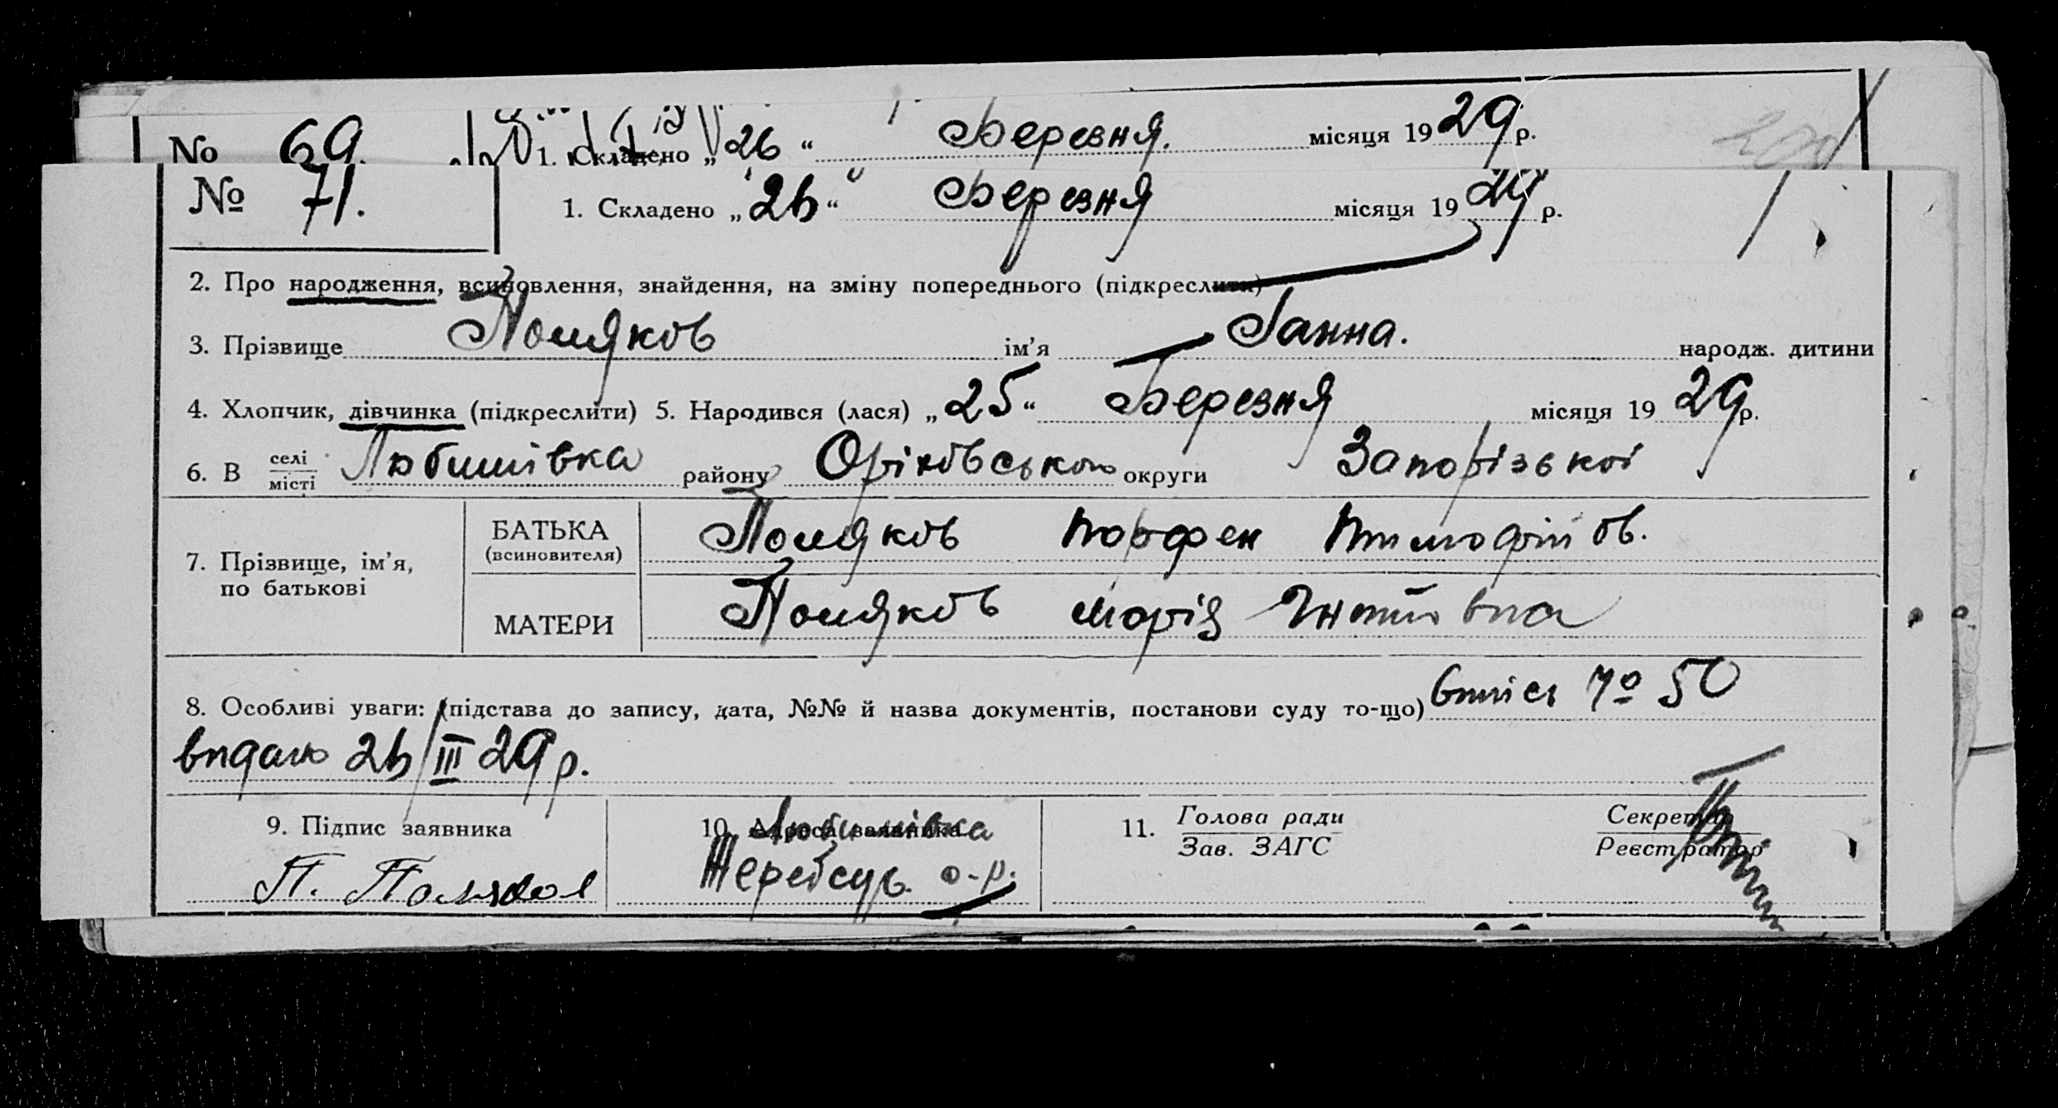 № 69. 1. Складено „26“ Березня. місяця 1929 р.
№ 71. 1. Складено „26“ Березня місяця 1929 р.
2. Про народження, всиновлення, знайдення, на зміну попереднього (підкреслити)
3. Прізвище Поляков ім’я Ганна. народж. дитини
4. Хлопчик, дівчинка (підкреслити) 5. Народився (лася) „25“ Березня місяця 1929 р.
6. В селі Любимівка району Оріхівського округи Запорізької
місті
7. Прізвище, ім’я, по батькові
БАТЬКА (всиновителя) Поляков Порфен Тимофійов.
МАТЕРИ Поляков Марія Гнатівна
8. Особливі уваги: (підстава до запису, дата, №№ й назва документів, постанови суду то-що) № 50
видано 26/III 29 р.
9. Підпис заявника 10. Адреса заявника 11. Голова ради Секретар
Зав. ЗАГС Реєстратор
Любимівка
П. Поляков Жеребець. о-р.